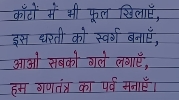 काँटों में भी फूल खिलाएँ,
इस धरती को स्वर्ग बनाएँ,
आओ सबको गले लगाएँ,
हम गणतंत्र का पर्व मनाएँ।